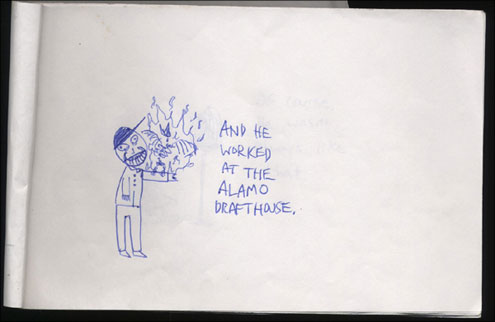 AND HE
WORKED
AT THE
ALAMO
DRAFTHOUSE.